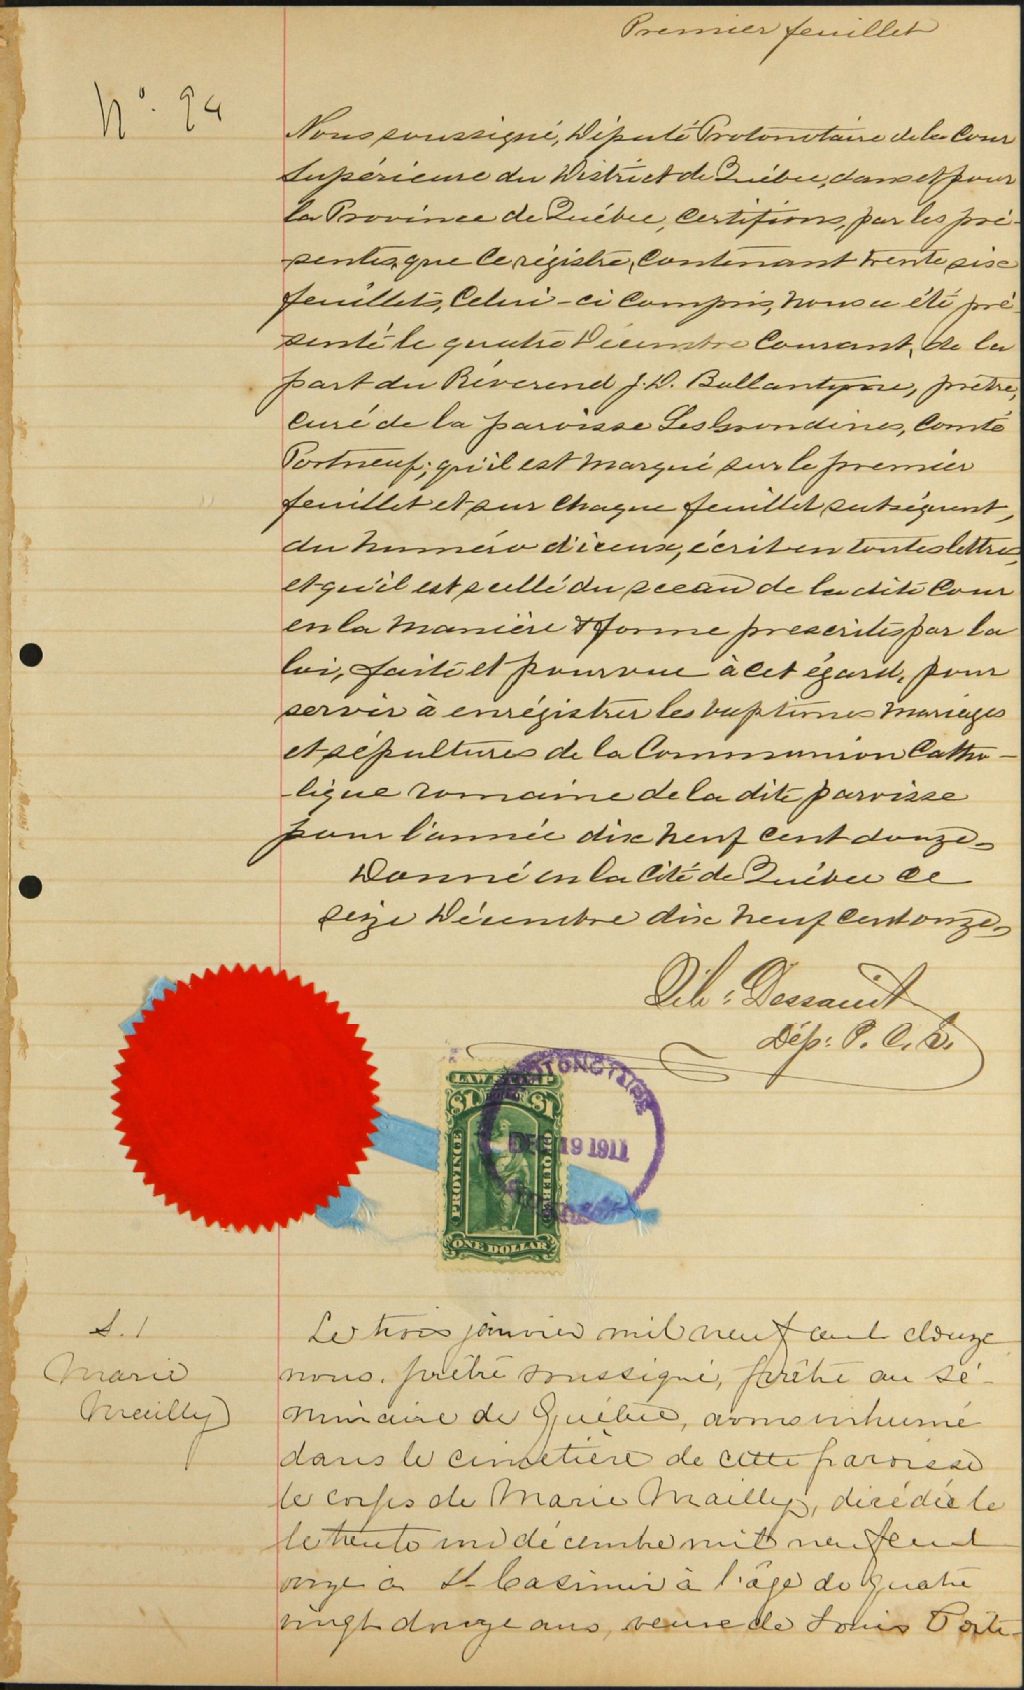 Premier feuillet
No. 94
Nous soussigné, Député Protonotaire de la Cour
Supérieure du District de Québec, dans et pour
la Province de Québec, certifions, par les pré-
-sentes, que ce régistre, contenant trente six
feuillets, celui-ci compris, nous a été pré-
senté le quatre Décembre courant, de la
part du Révérend J. D. Ballantyne, prêtre,
curé de la paroisse Les Grondines, Comté
Portneuf; qu'il est marqué sur le premier
feuillet et sur chaque feuillet subséquent,
du numéro d'iceux, écrit en toutes lettres,
et qu'il est scellé du sceau de la dite Cour
en la manière & forme prescrites par la
loi, faite et pourvue à cet égard, pour
servir à enrégistrer les baptêmes mariages
et sépultures de la Communion Catho-
-lique romaine de la dite paroisse
pour l'année dix neuf cent douze.
Donné en la Cité de Québec ce
seize Décembre dix neuf cent onze.
Dép: P. C. S.
LAW STAMP
$1 $1
PROVINCE
OF QUEBEC
ONE DOLLAR
PROTONOTAIRE
DEC 19 1911
S. 1
Marie
Mailly
Le trois janvier mil neuf cent douze
nous, prêtre soussigné, prêtre au sé-
minaire de Québec, avons inhumé
dans le cimetière de cette paroisse
le corps de Marie Mailly, décédée le
le trente un décembre mil neuf cent
onze à St Casimir à l'âge de quatre
vingt douze ans, veuve de Louis Porte-